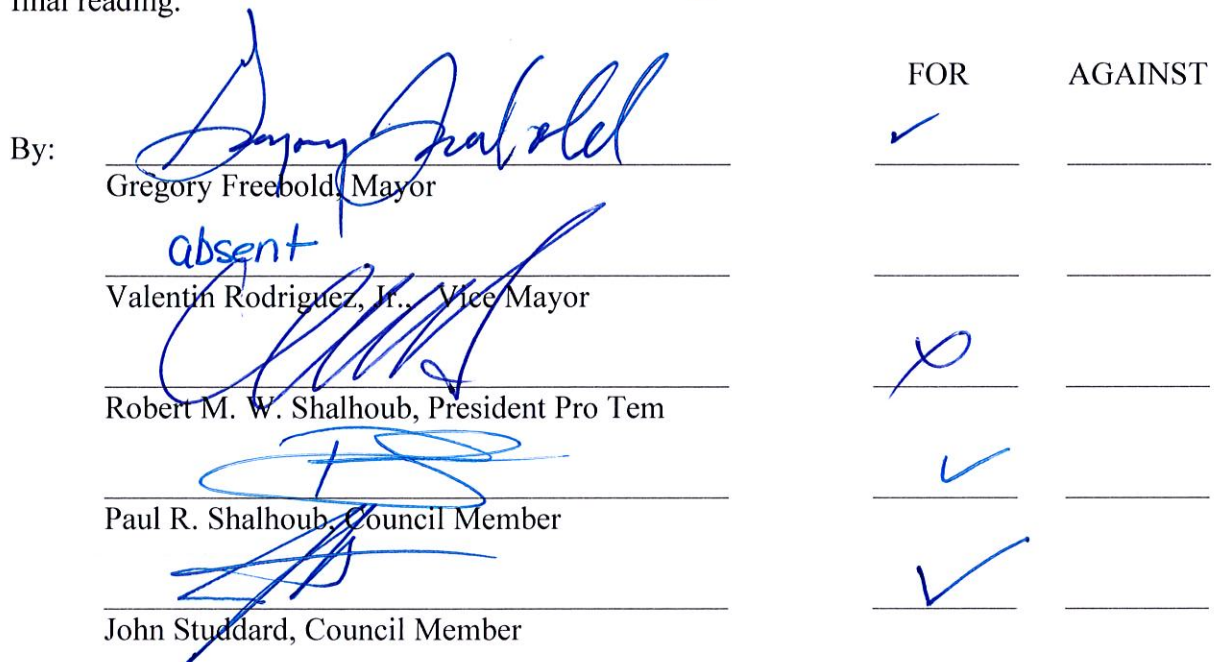 final reading.
FOR AGAINST
By:
Gregory Freebold, Mayor
absent
Valentin Rodriguez, Jr., Vice Mayor
Robert M. W. Shalhoub, President Pro Tem
Paul R. Shalhoub, Council Member
John Studdard, Council Member